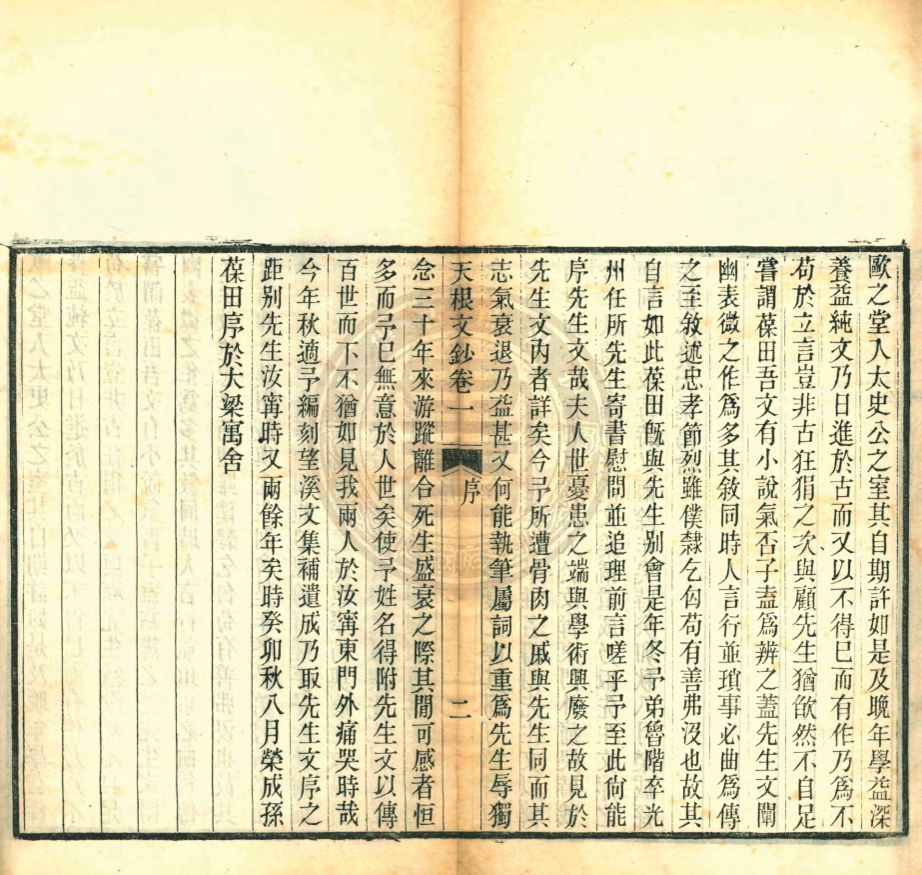 歐之堂入太史公之室其自期許如是及晚年學益深
養益純文乃日進於古而又以不得已而有作乃爲不
苟於立言豈非古狂狷之次與顧先生猶欿然不自足
嘗謂葆田吾文有小說氣否子盍爲辨之蓋先生文闡
幽表微之作爲多其敘同時人言行並瑣事必曲爲傳
之至敘述忠孝節烈雖僕隸乞匄苟有善弗沒也故其
自言如此葆田旣與先生別會是年冬予弟魯階卒光
州任所先生寄書慰問並追理前言嗟乎予至此尙能
序先生文哉夫人世憂患之端與學術興廢之故見於
先生文內者詳矣今予所遭骨肉之戚與先生同而其
志氣衰退乃益甚又何能執筆屬詞以重爲先生辱獨
天根文鈔卷一 序 二
念三十年來游蹤離合死生盛衰之際其閒可感者恒
多而予已無意於人世矣使予姓名得附先生文以傳
百世而下不猶如見我兩人於汝甯東門外痛哭時哉
今年秋適予編刻望溪文集補遺成乃取先生文序之
距別先生汝甯時又兩餘年矣時癸卯秋八月榮成孫
葆田序於大梁寓舍